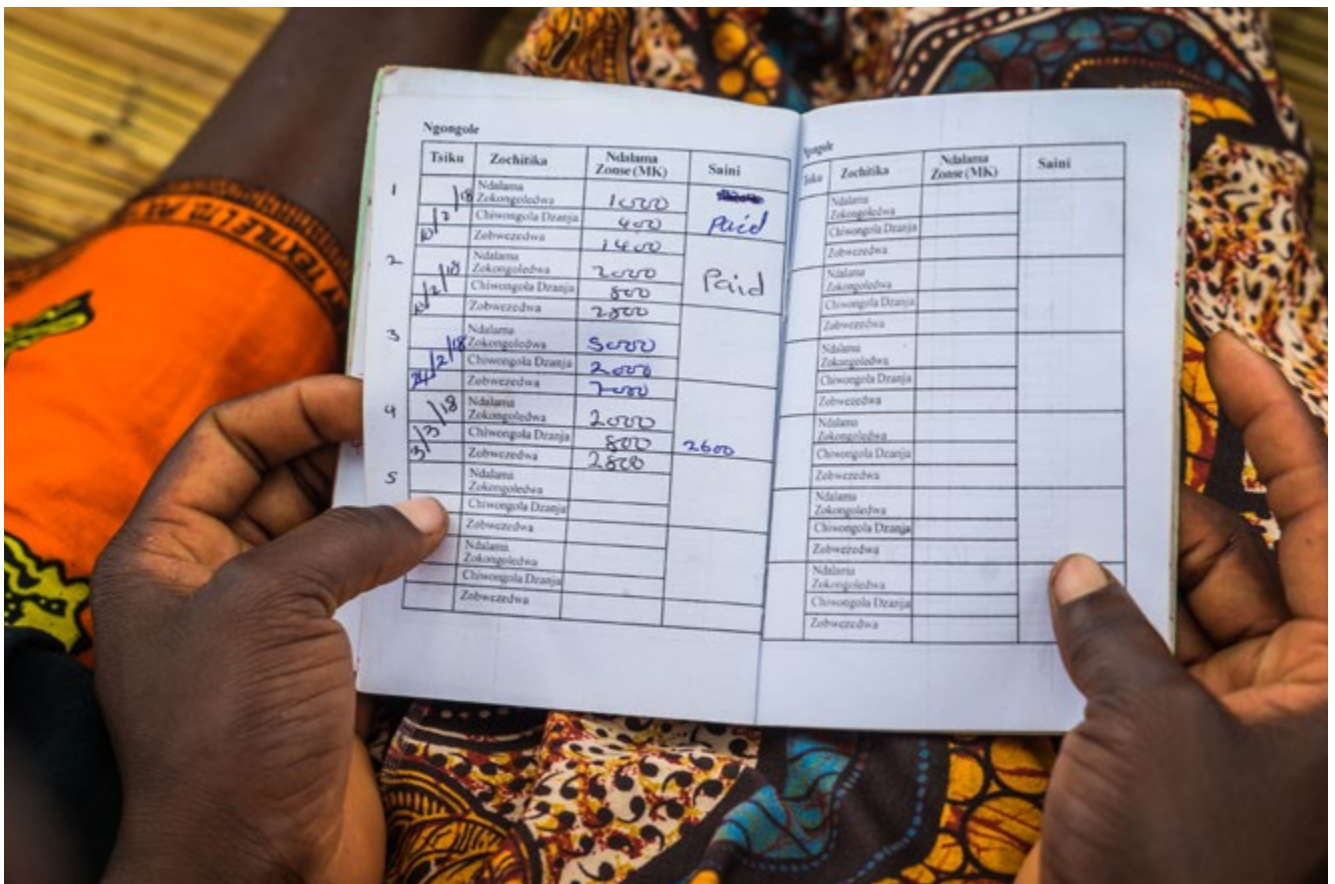 Ngongole
Tsiku Zochitika Ndalama Zonse (MK) Saini
1 10/2/18 Ndalama Zokongoledwa 1000 Paid
Chiwongola Dzanja 400
Zobwezedwa 1400
2 10/2/18 Ndalama Zokongoledwa 2000 Paid
Chiwongola Dzanja 800
Zobwezedwa 2800
3 24/2/18 Ndalama Zokongoledwa 5000
Chiwongola Dzanja 2000
Zobwezedwa 7000
4 3/3/18 Ndalama Zokongoledwa 2000
Chiwongola Dzanja 800 2600
Zobwezedwa 2800
5 Ndalama Zokongoledwa
Chiwongola Dzanja
Zobwezedwa
Ndalama Zokongoledwa
Chiwongola Dzanja
Zobwezedwa
Ngongole
Tsiku Zochitika Ndalama Zonse (MK) Saini
Ndalama Zokongoledwa
Chiwongola Dzanja
Zobwezedwa
Ndalama Zokongoledwa
Chiwongola Dzanja
Zobwezedwa
Ndalama Zokongoledwa
Chiwongola Dzanja
Zobwezedwa
Ndalama Zokongoledwa
Chiwongola Dzanja
Zobwezedwa
Ndalama Zokongoledwa
Chiwongola Dzanja
Zobwezedwa
Ndalama Zokongoledwa
Chiwongola Dzanja
Zobwezedwa